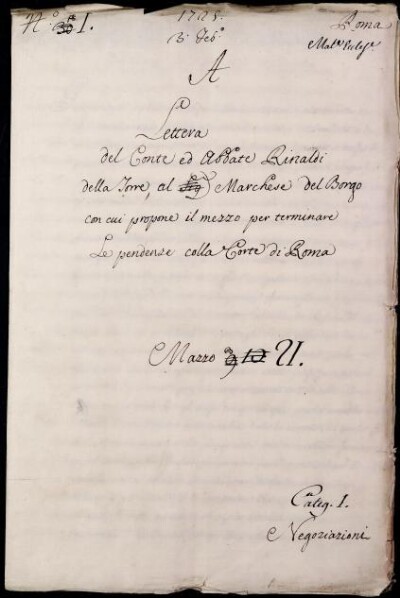 N.° 1.
1725.
3. Feb.°
Roma
A
Lettera
del Conte ed Abbate Rinaldi
della Torre, al Marchese del Borgo
con cui propone il mezzo per terminare
Le pendenze colla Corte di Roma
Mazzo
Categ. I.
Negoziazioni